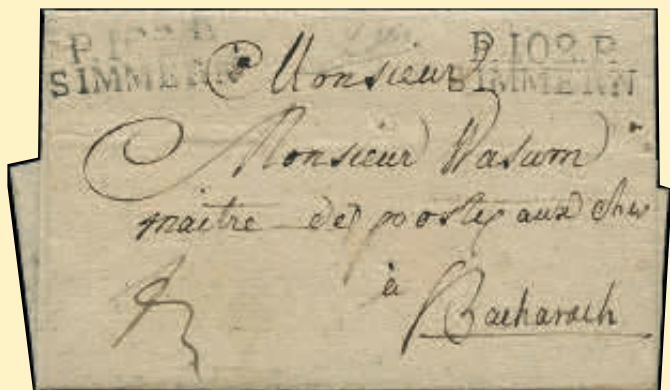 P.102.P. P.102.P.
SIMMERN SIMMERN
à Monsieur
Monsieur Wasum
maitre des postes aux chev
à
Bacharach